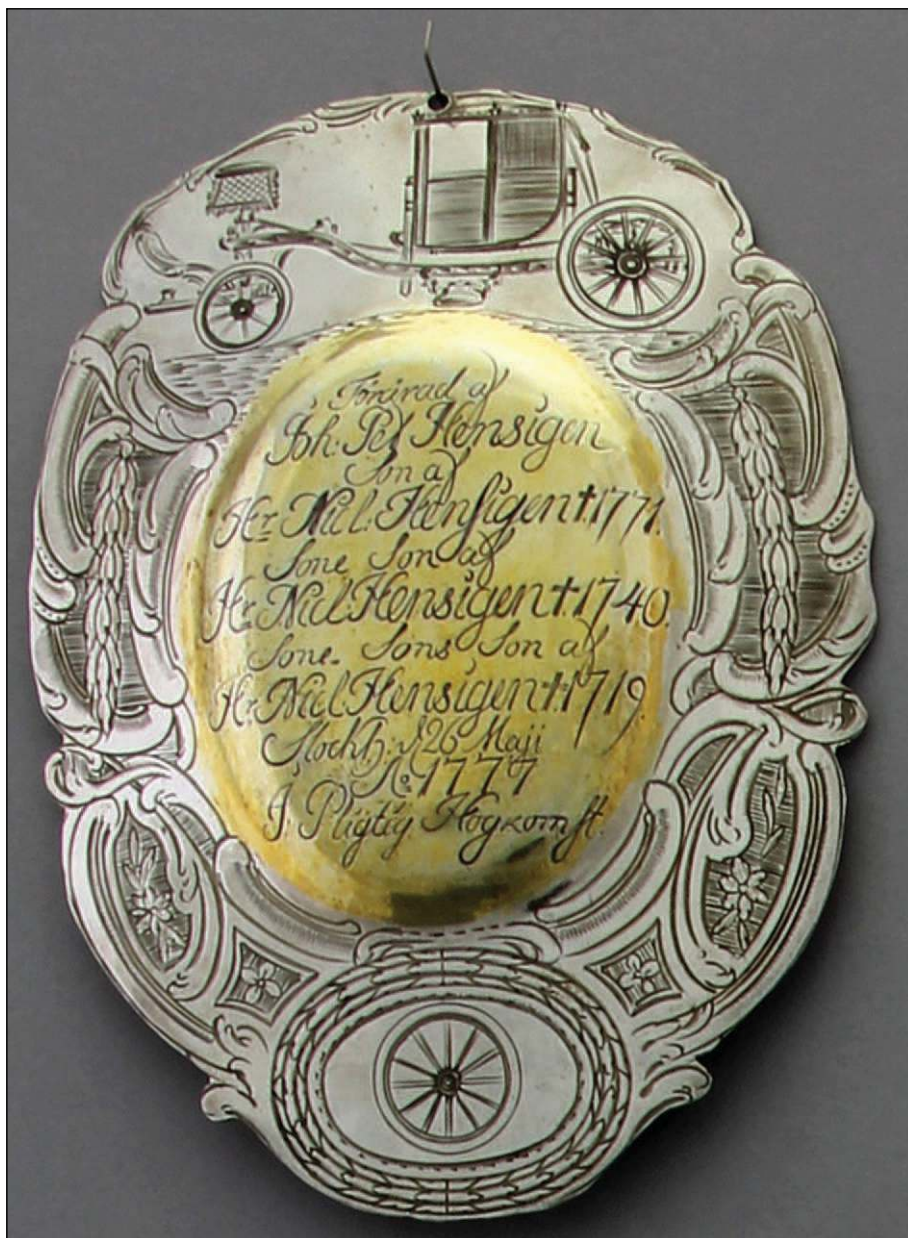 Förärad af
Joh: Pet Hensigen
Son af
Hr. Nicl: Hensigen †.1771.
Sone Son af
Hr. Nicl: Hensigen †.1740.
Sone. Sons Son af
Hr. Nicl. Hensigen †.1719.
Stockh: d 26 Maji
Ao. 1777
J. Pligtig Hogkomst.